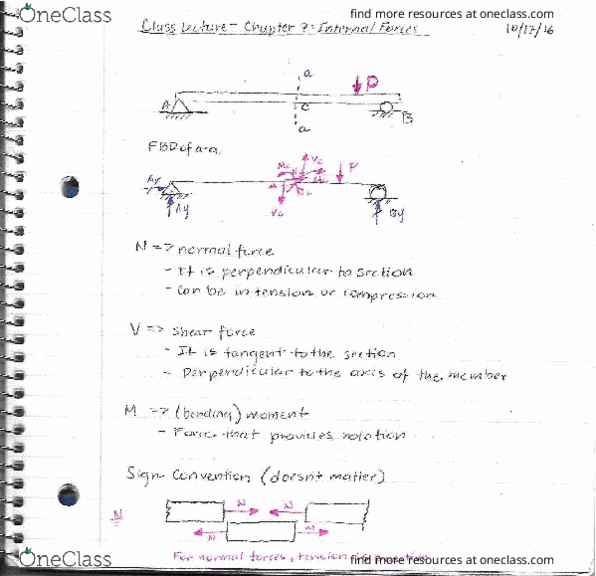 OneClass
find more resources at oneclass.com
Class Lecture - Chapter 7: Internal Forces
10/17/16
a
P
A
C
B
a
FBD of a-a
Vc
Mc
P
Ay
Vc
By
N => normal force
- It is perpendicular to section
- Can be in tension or compression
V => shear force
- It is tangent to the section
- Perpendicular to the axis of the member
M => (bending) moment
- Force that provides rotation
Sign Convention (doesn't matter)
N
N
N
N
N
For normal forces, tension
OneClass
find more resources at oneclass.com